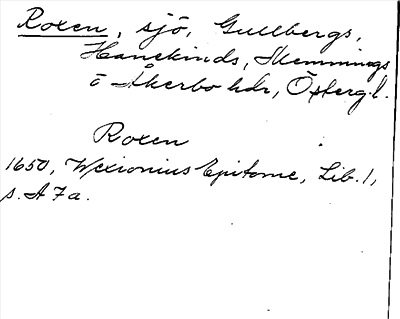 Roxen, sjö, Gullbergs,
Hanekinds, Memmings
o Åkerbo hdr, Östergl.
Roxen
1650, Wexionius Epitome, Lib. 1,
s. A 7 a.